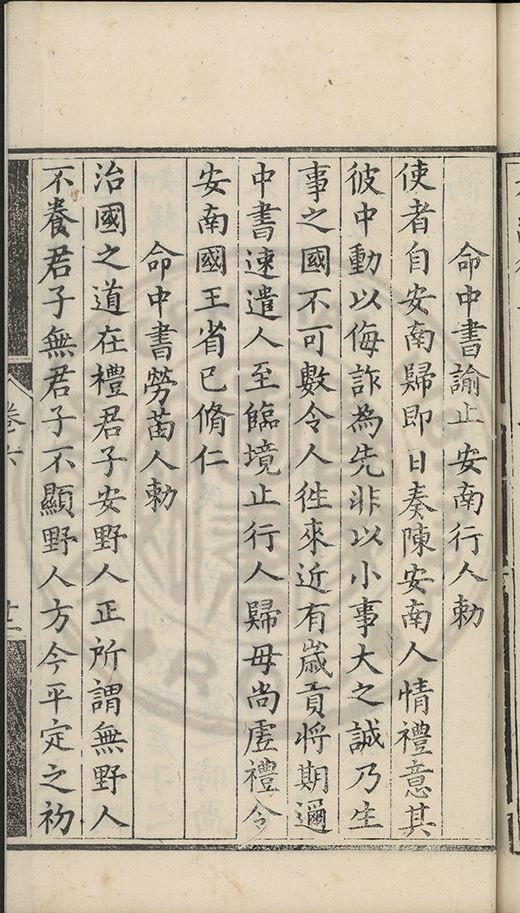 命中書諭止安南行人勅
使者自安南歸即日奏陳安南人情禮意其
彼中動以侮詐為先非以小事大之誠乃生
事之國不可數令人徃來近有歲貢將期邇
中書速遣人至臨境止行人歸毋尚虛禮令
安南國王省己脩仁
命中書勞苗人勅
治國之道在禮君子安野人正所謂無野人
不養君子無君子不顯野人方今平定之初
卷六